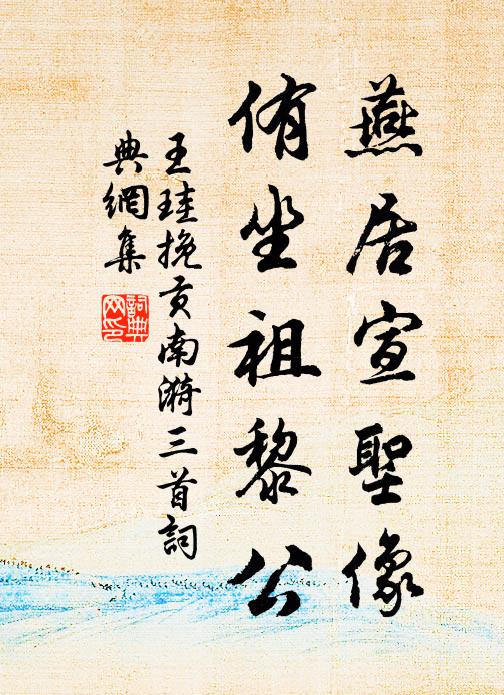 燕居宣聖像
侑坐祖黎公
王珪挽貢南漪三首詞
典網集
詞典網印